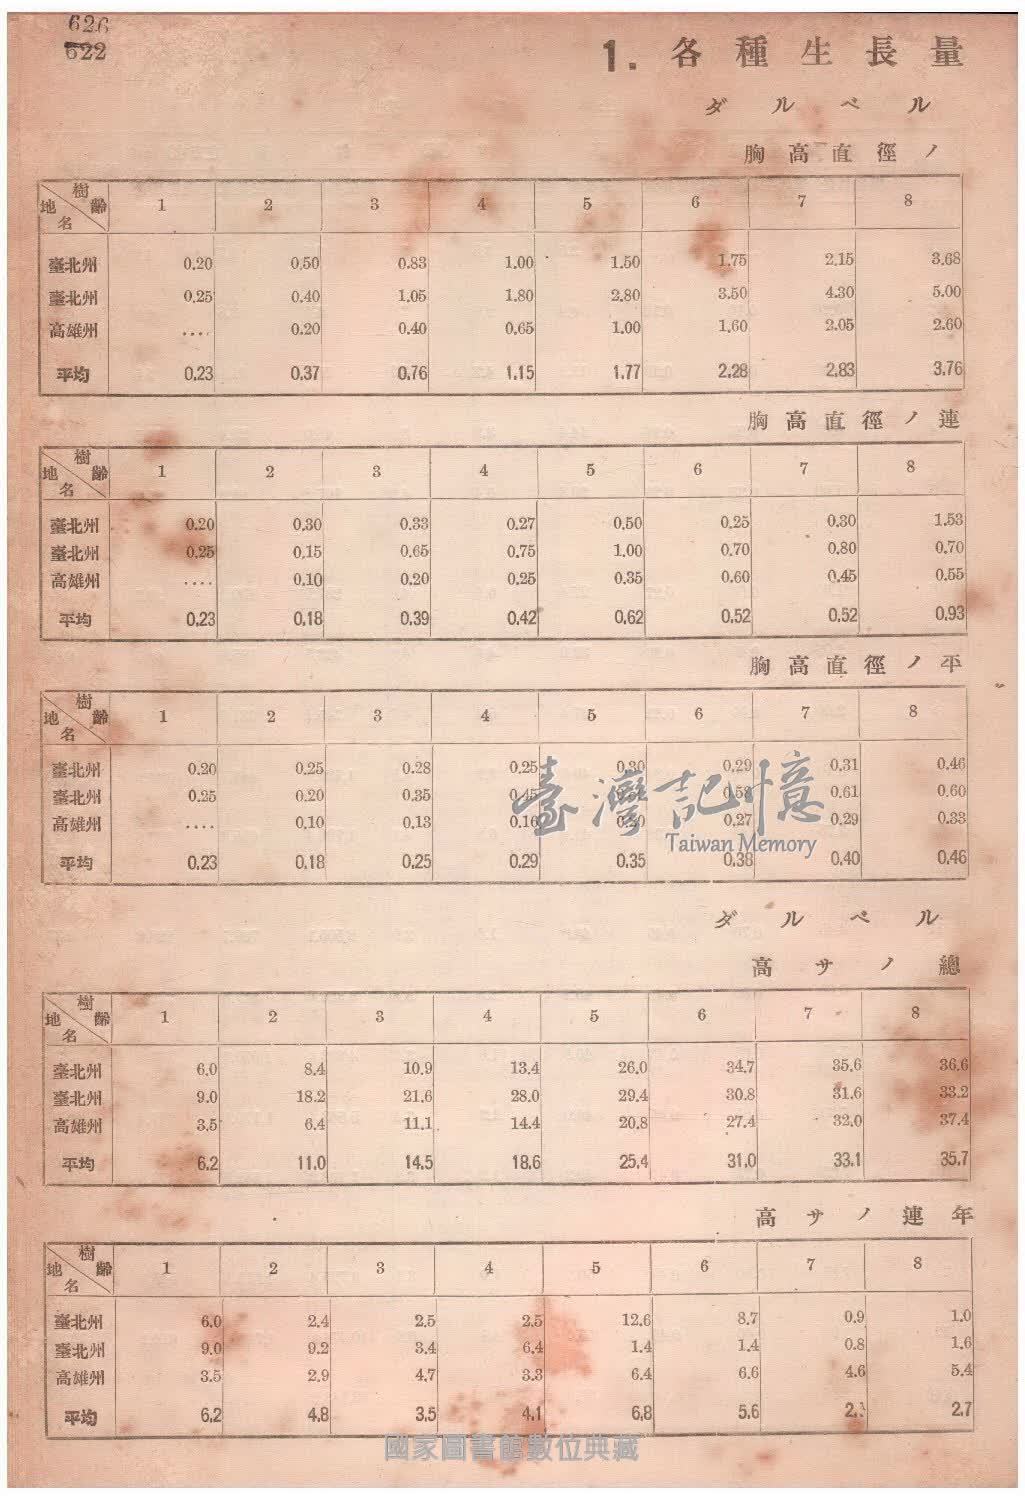 626
622
1. 各種生長量
ダルベル
胸高直徑ノ
樹齡 地名 1 2 3 4 5 6 7 8
臺北州 0.20 0.50 0.83 1.00 1.50 1.75 2.15 3.68
臺北州 0.25 0.40 1.05 1.80 2.80 3.50 4.30 5.00
高雄州 .... 0.20 0.40 0.65 1.00 1.60 2.05 2.60
平均 0.23 0.37 0.76 1.15 1.77 2.28 2.83 3.76
胸高直徑ノ連
樹齡 地名 1 2 3 4 5 6 7 8
臺北州 0.20 0.30 0.33 0.27 0.50 0.25 0.30 1.53
臺北州 0.25 0.15 0.65 0.75 1.00 0.70 0.80 0.70
高雄州 .... 0.10 0.20 0.25 0.35 0.60 0.45 0.55
平均 0.23 0.18 0.39 0.42 0.62 0.52 0.52 0.93
胸高直徑ノ平
樹齡 地名 1 2 3 4 5 6 7 8
臺北州 0.20 0.25 0.28 0.25 0.30 0.29 0.31 0.46
臺北州 0.25 0.20 0.35 0.45 0.58 0.61 0.60
高雄州 .... 0.10 0.13 0.16 0.20 0.27 0.29 0.33
平均 0.23 0.18 0.25 0.29 0.35 0.38 0.40 0.46
臺灣記憶
Taiwan Memory
ダルベル
高サノ總
樹齡 地名 1 2 3 4 5 6 7 8
臺北州 6.0 8.4 10.9 13.4 26.0 34.7 35.6 36.6
臺北州 9.0 18.2 21.6 28.0 29.4 30.8 31.6 33.2
高雄州 3.5 6.4 11.1 14.4 20.8 27.4 32.0 37.4
平均 6.2 11.0 14.5 18.6 25.4 31.0 33.1 35.7
高サノ連年
樹齡 地名 1 2 3 4 5 6 7 8
臺北州 6.0 2.4 2.5 2.5 12.6 8.7 0.9 1.0
臺北州 9.0 9.2 3.4 6.4 1.4 1.4 0.8 1.6
高雄州 3.5 2.9 4.7 3.3 6.4 6.6 4.6 5.4
平均 6.2 4.8 3.5 4.1 6.8 5.6 2.7
國家圖書館數位典藏